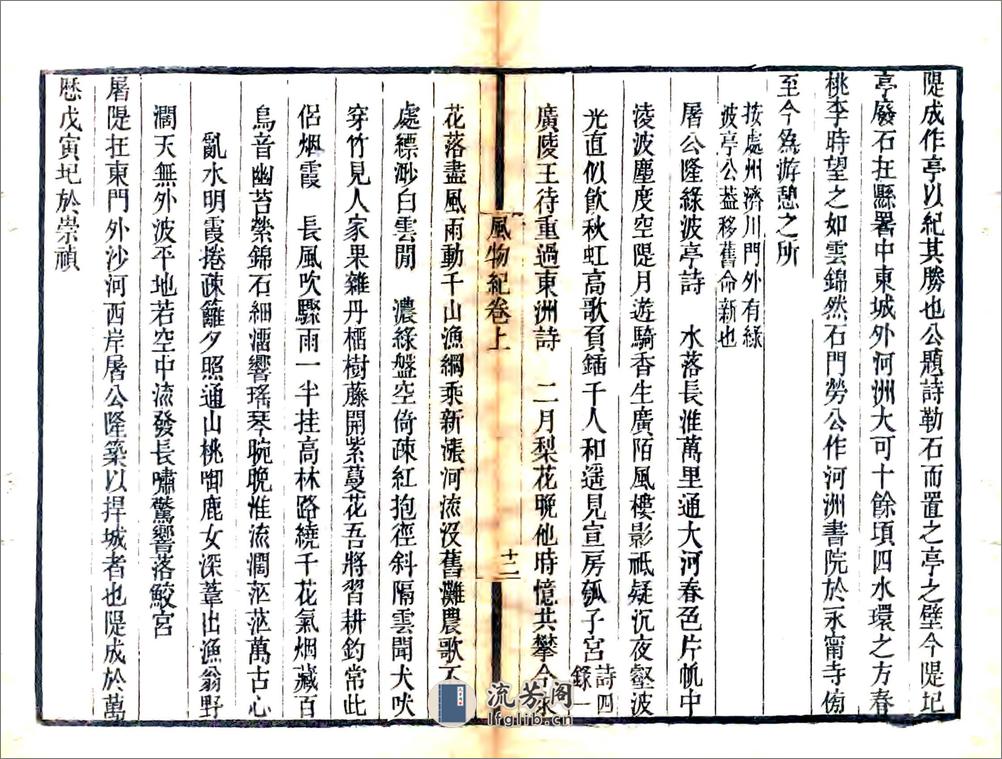 隄成作亭以紀其勝也公題詩勒石而置之亭之壁今隄圮
亭廢石在縣署中東城外河洲大可十餘頃四水環之方春
桃李時望之如雲錦然石門勞公作河洲書院於永甯寺傍
至今為游憩之所
按處州濟川門外有綠
波亭公葢移舊命新也
屠公隆綠波亭詩　水落長淮萬里通大河春色片帆中
淩波塵度空隄月遊騎香生廣陌風樓影祇疑沉夜壑波
光直似飲秋虹高歌負鍤千人和遥見宣房瓠子宮
詩四
錄一
廣陵王待重過東洲詩　二月梨花晚他時憶共攀今來
風物紀卷上
十二
花落盡風雨動千山漁綱乘新漲河流沒舊灘農歌不
處縹渺白雲閒　濃綠盤空倚疎紅抱徑斜隔雲聞犬吠
穿竹見人家果雜丹橊樹藤開紫蔓花吾將習耕釣常此
侶烟霞　長風吹驟雨一半挂高林路繞千花氣烟藏百
鳥音幽苔縈錦石細溜響瑤琴晼晩惟流濶茫茫萬古心
亂水明霞捲疎籬夕照通山桃啣鹿女深葦出漁翁野
濶天無外波平地若空中流發長嘯驚響落鮫宮
屠隄在東門外沙河西岸屠公隆築以捍城者也隄成於萬
厯戊寅圮於崇禎
流芳阁
lfglib.cn